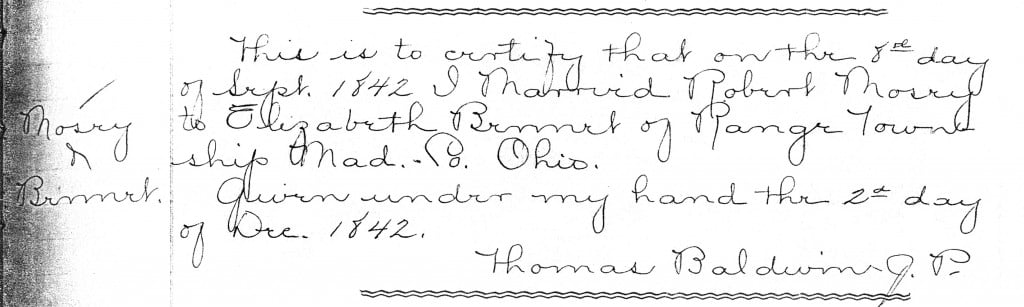 This is to certify that on the 8th day
of Sept. 1842 I Married Robert Mosey
to Elizabeth Bennet of Range Town
ship Mad. Co. Ohio.
Given under my hand the 2d day
of Dec. 1842.
Thomas Baldwin J. P.
Mosey
&
Bennet.